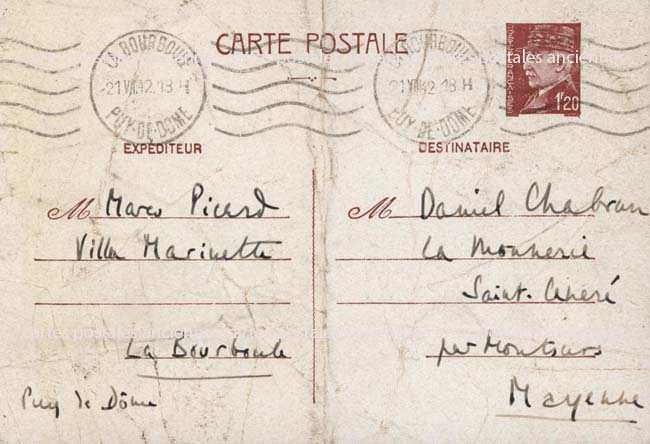 CARTE POSTALE
LA BOURBOULE
21 VII 42 18 H
PUY-DE-DÔME
LA BOURBOULE
21 VII 42 18 H
PUY-DE-DÔME
1F20
EXPÉDITEUR
M Marco Picard
Villa Marinette
La Bourboule
Puy de Dôme
DESTINATAIRE
M Daniel Chabrun
La Monnerie
Saint-Céneré
par Montsurs
Mayenne